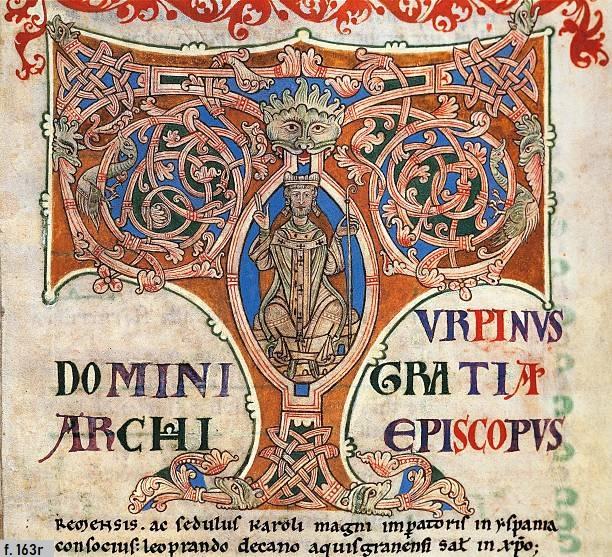 TURPINUS
DOMINI GRATIA
ARCHI EPISCOPUS
Remensis. ac sedulus karoli magni imperatoris in yspania
consocius: leoprando decano aquisgranensi salt in xpo:
f. 163r